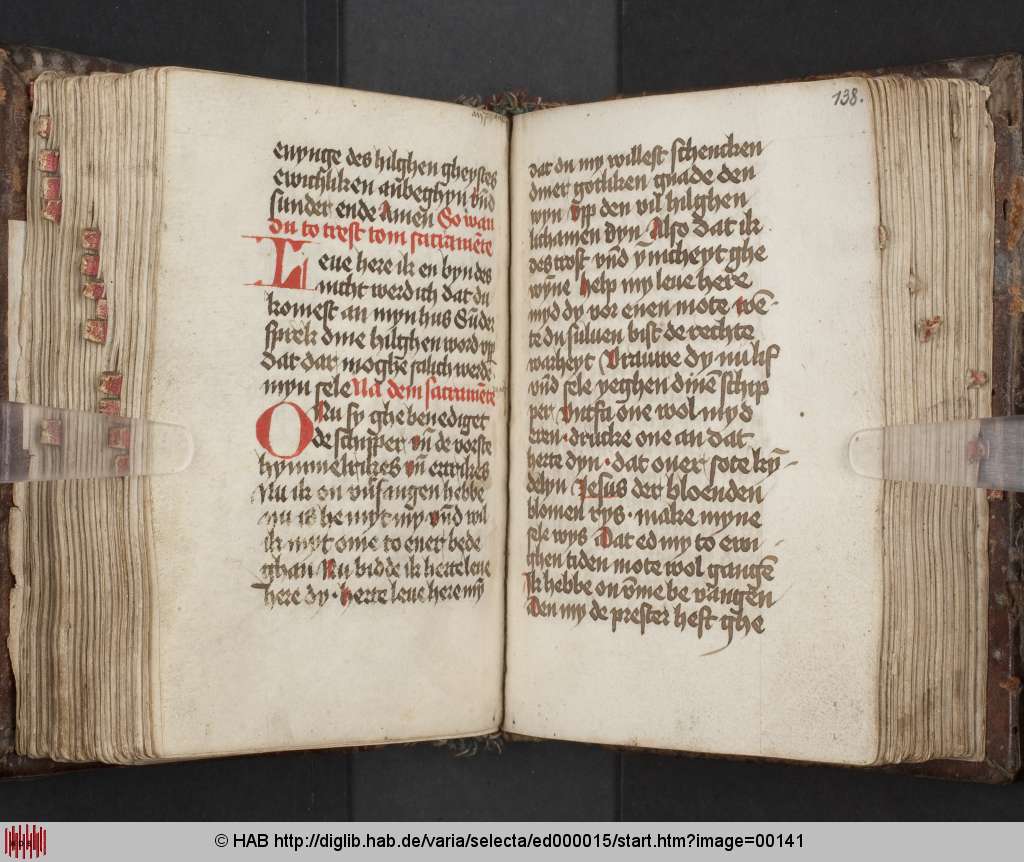 enynge des hilghen gheystes
ewichliken an̄beghyn vn̄d
sunder ende Amen So wan
du to trest tom sacramēte
Leue here ik en byn des
nicht werdich dat du
komest an myn hus Sūder
sprek dine hilghen word vp̄
dat dar moghē salich werdē
myn sele Na dem sacramēte
O Nu sy ghebenediget
de schipper vn̄ de vorste
hymmelrikes vn̄ ertrikes
Nu ik on vn̄fangen hebbe
nu is he myt my vn̄d wil
ik myt ome to ener bede
ghan Nu bidde ik herte leue
here dy · herte leue here mȳ
138.
dat du my willest schencken
diner gotliken gnade den
wyn vp̄ den vil hilghen
lichamen dyn · Also dat ik
des trost vn̄d ȳnicheyt ghe
wȳne help my leue here
myd dy vor enen mote wē-
te du suluen bist de rechte
warheyt Vrauwe dy nu lif
vn̄d sele yeghen dinē schip
per Vntfa one wol myd
eren · drucke one an dat
herte dyn · dat ouer sote kȳ-
delyn Jesus der bloenden
blomen rys · make myne
sele wys Dat ed my to ewi
ghen tiden mote wol gangē
Ik hebbe on v̄mebevangen
Den my de prester heft ghe
© HAB http://diglib.hab.de/varia/selecta/ed000015/start.htm?image=00141